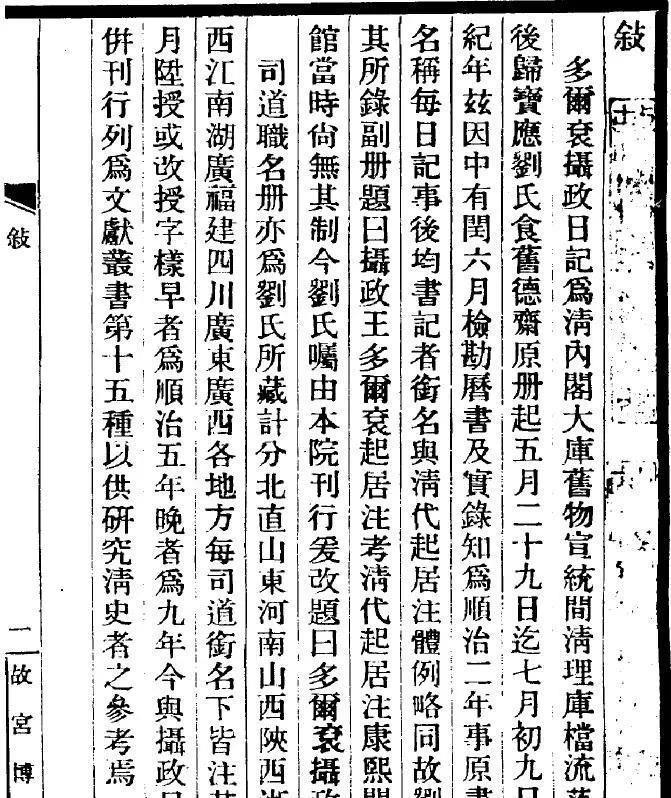 敍
多爾袞攝政日記爲淸內閣大庫舊物宣統間淸理庫檔流
後歸寶應劉氏食舊德齋原册起五月二十九日迄七月初九日
紀年玆因中有閏六月檢勘曆書及實錄知爲順治二年事原書
名稱每日記事後均書記者銜名與淸代起居注體例略同故劉
其所錄副册題曰攝政王多爾袞起居注考淸代起居注康熙間
館當時尙無其制今劉氏囑由本院刊行爰改題曰多爾袞攝政
司道職名册亦爲劉氏所藏計分北直山東河南山西陝西
西江南湖廣福建四川廣東廣西各地方每司道銜名下皆注
月陞授或改授字樣早者爲順治五年晚者爲九年今與攝政
倂刊行列爲文獻叢書第十五種以供硏究淸史者之參考焉
敍
二
故宮博